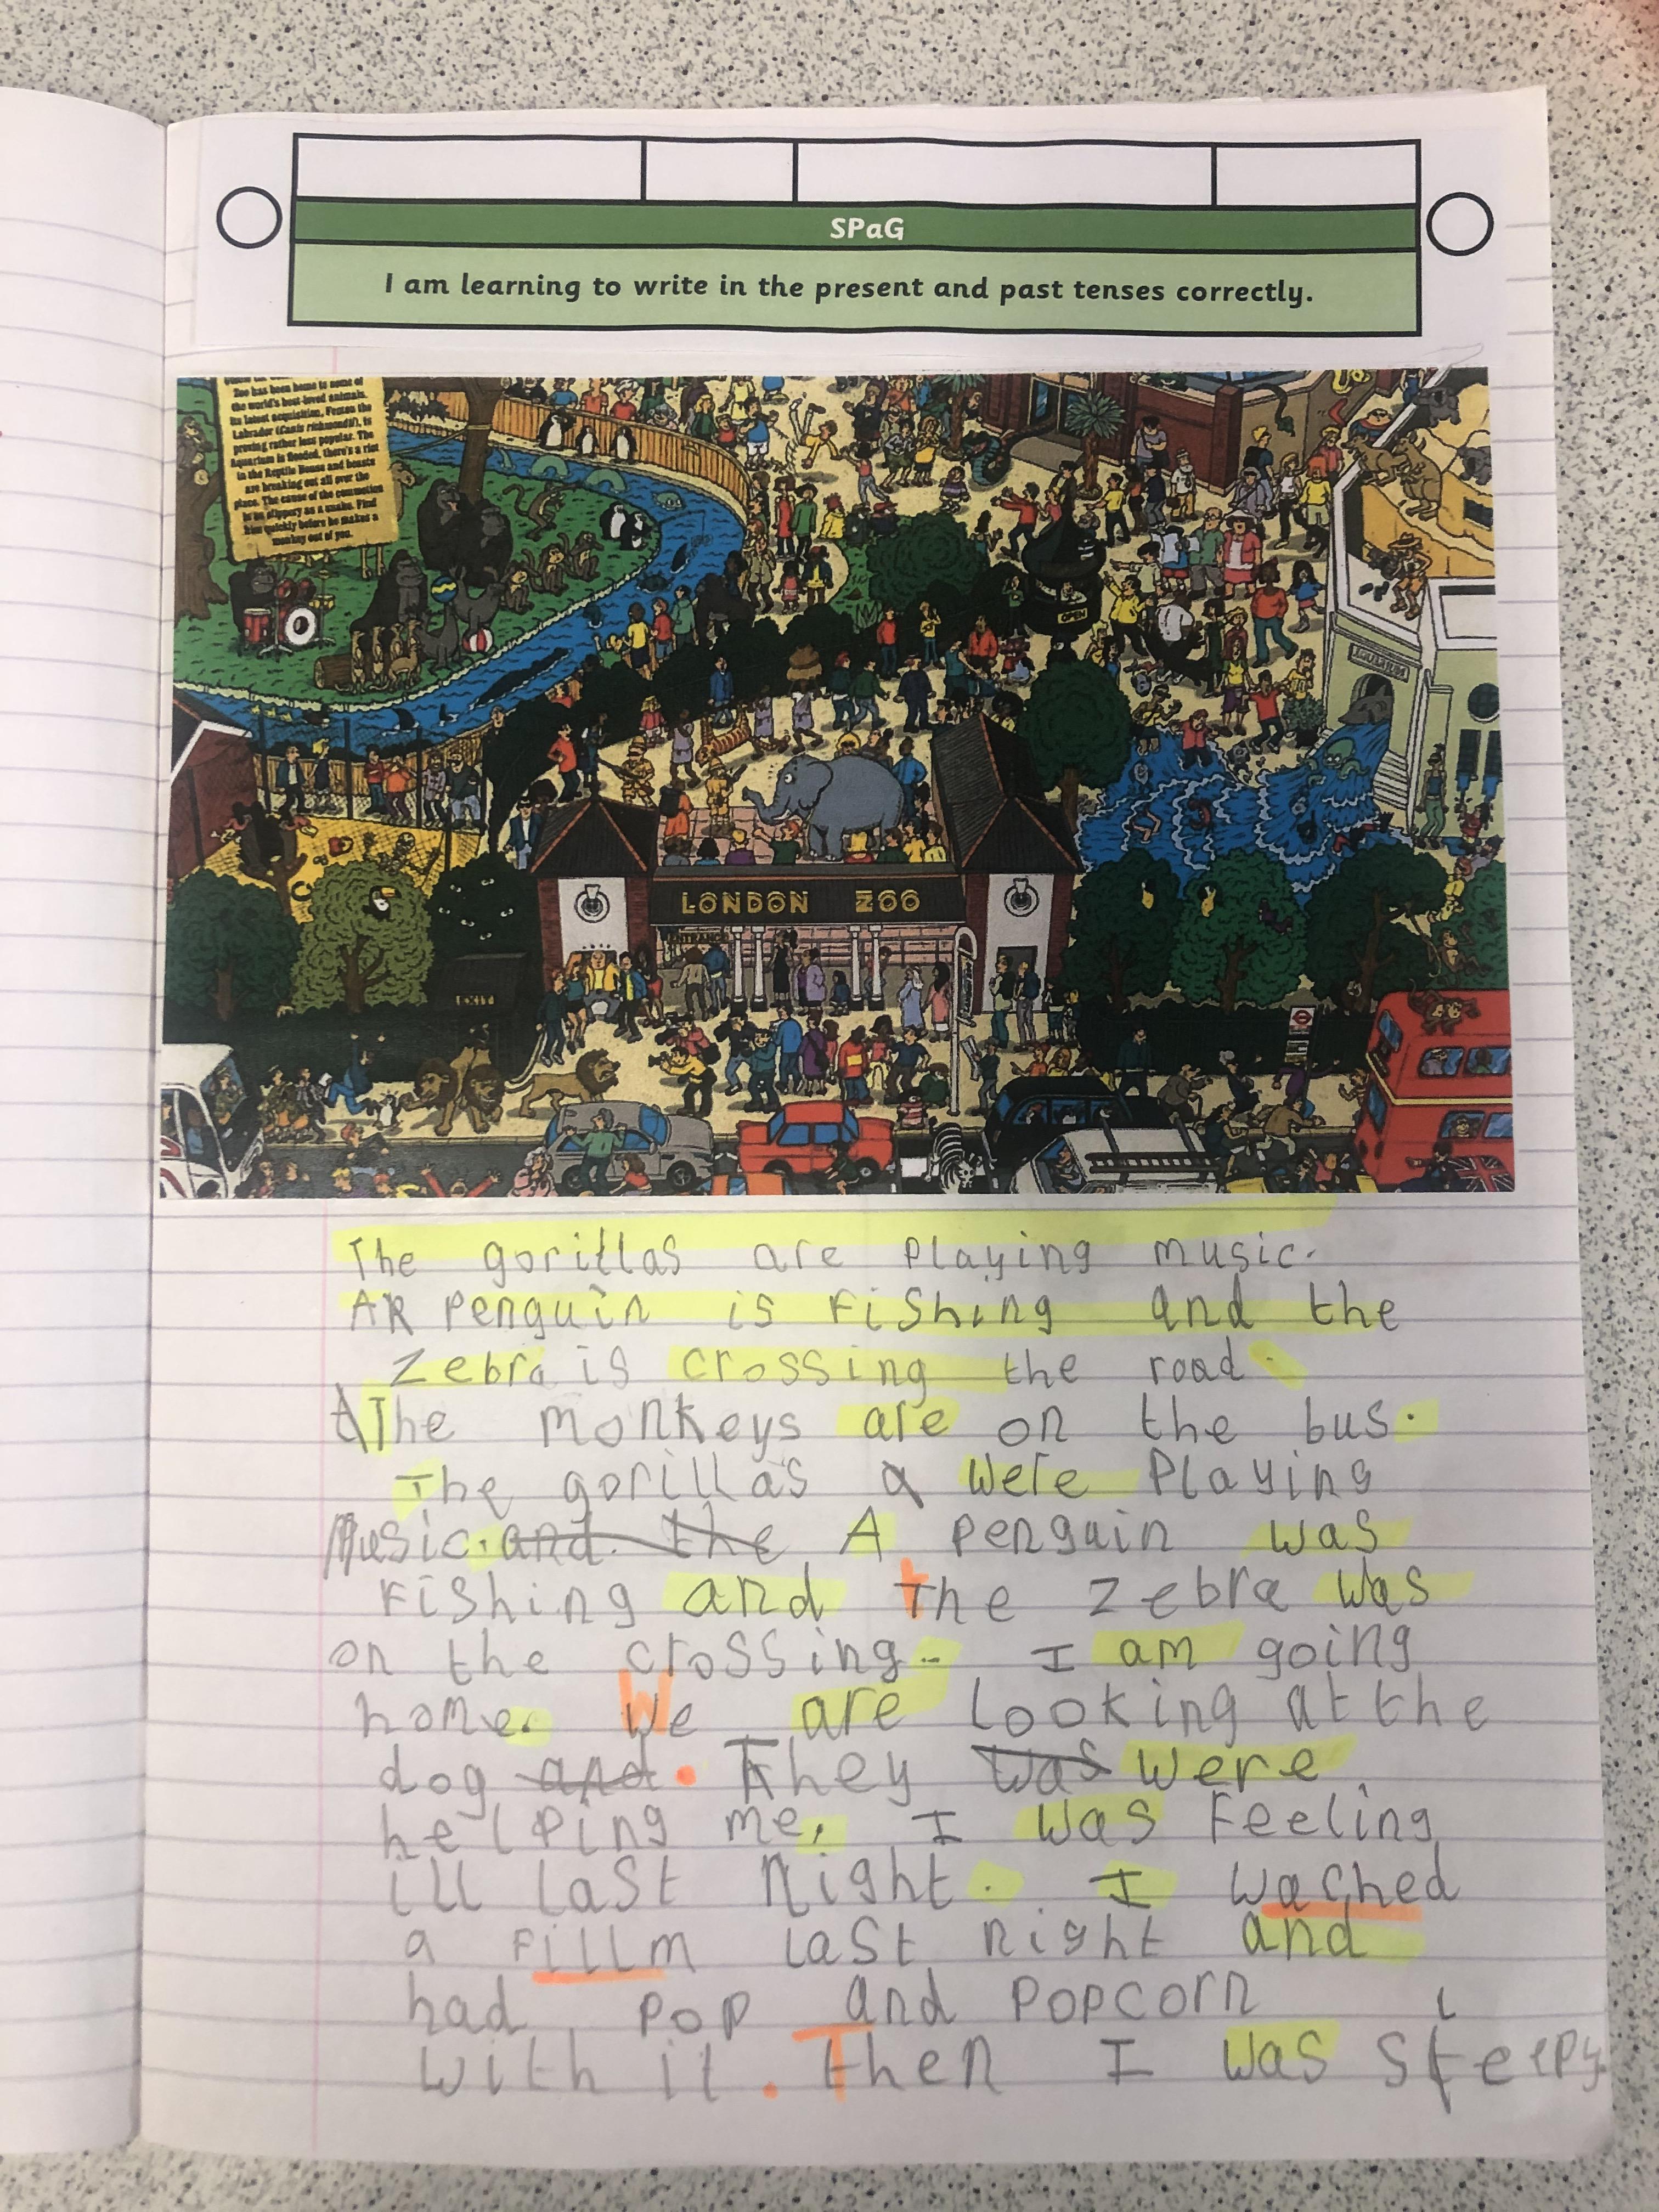 SPaG
I am learning to write in the present and past tenses correctly.
Zoo has been home to some of
the world's best-loved animals.
Its latest acquisition, Fenton the
Labrador (Canis richmondii), is
proving rather less popular. The
Aquarium is flooded, there's a riot
in the Reptile House and beasts
are breaking out all over the
place. The cause of the commotion
is as slippery as a snake. Find
him quickly before he makes a
monkey out of you.
OPEN
LONDON ZOO
ENTRANCE
EXIT
The gorillas are playing music.
A penguin is fishing and the
zebra is crossing the road.
The monkeys are on the bus.
The gorillas were playing
music. and the A penguin was
fishing and the zebra was
on the crossing. I am going
home. We are looking at the
dog and. They was were
helping me. I was feeling
ill last night. I wached
a fillm last night and
had pop and popcorn
with it. Then I was sleepy.